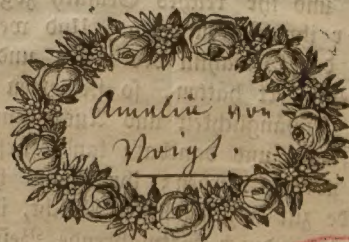 Amalie von
Voigt.